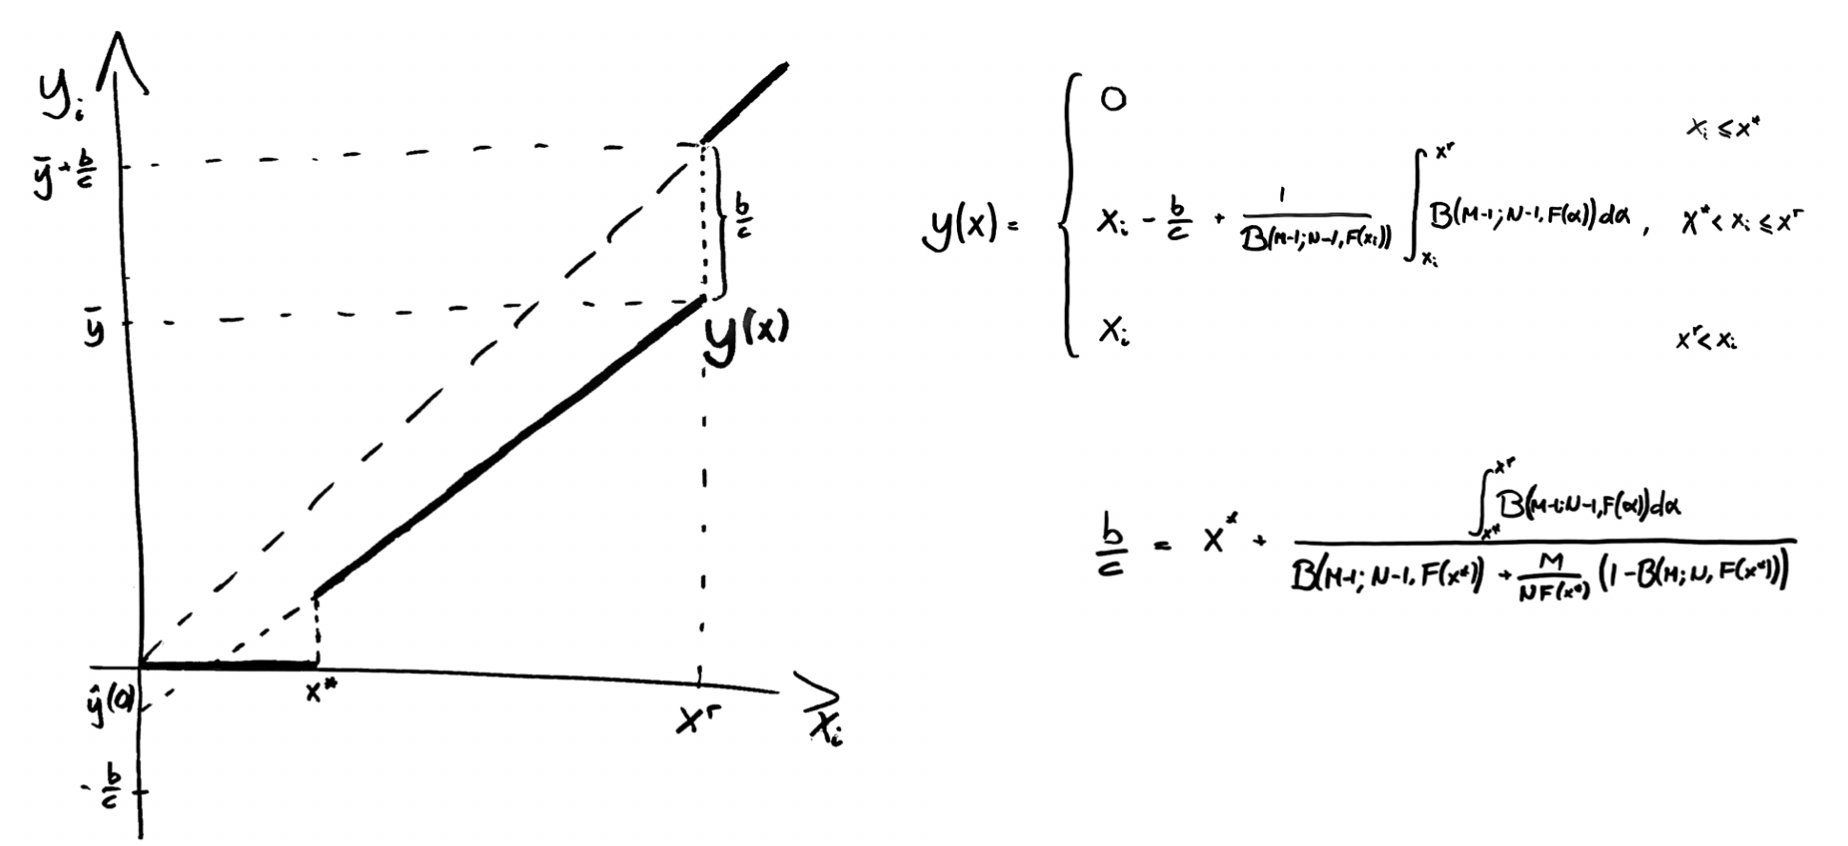 yᵢ
ȳ + b/c
b/c
ȳ
y(x)
ŷ(0)
x*
xʳ
xᵢ
- b/c
y(x) = {
0   xᵢ ≤ x*
xᵢ - b/c + 1/B(M-1; N-1, F(xᵢ)) ∫_{xᵢ}^{xʳ} B(M-1; N-1, F(α))dα , x* < xᵢ ≤ xʳ
xᵢ   xʳ < xᵢ
b/c = x* + ∫_{x*}^{xʳ} B(M-1; N-1, F(α))dα / B(M-1; N-1, F(x*)) + M/NF(x*) (1-B(M; N, F(x*)))